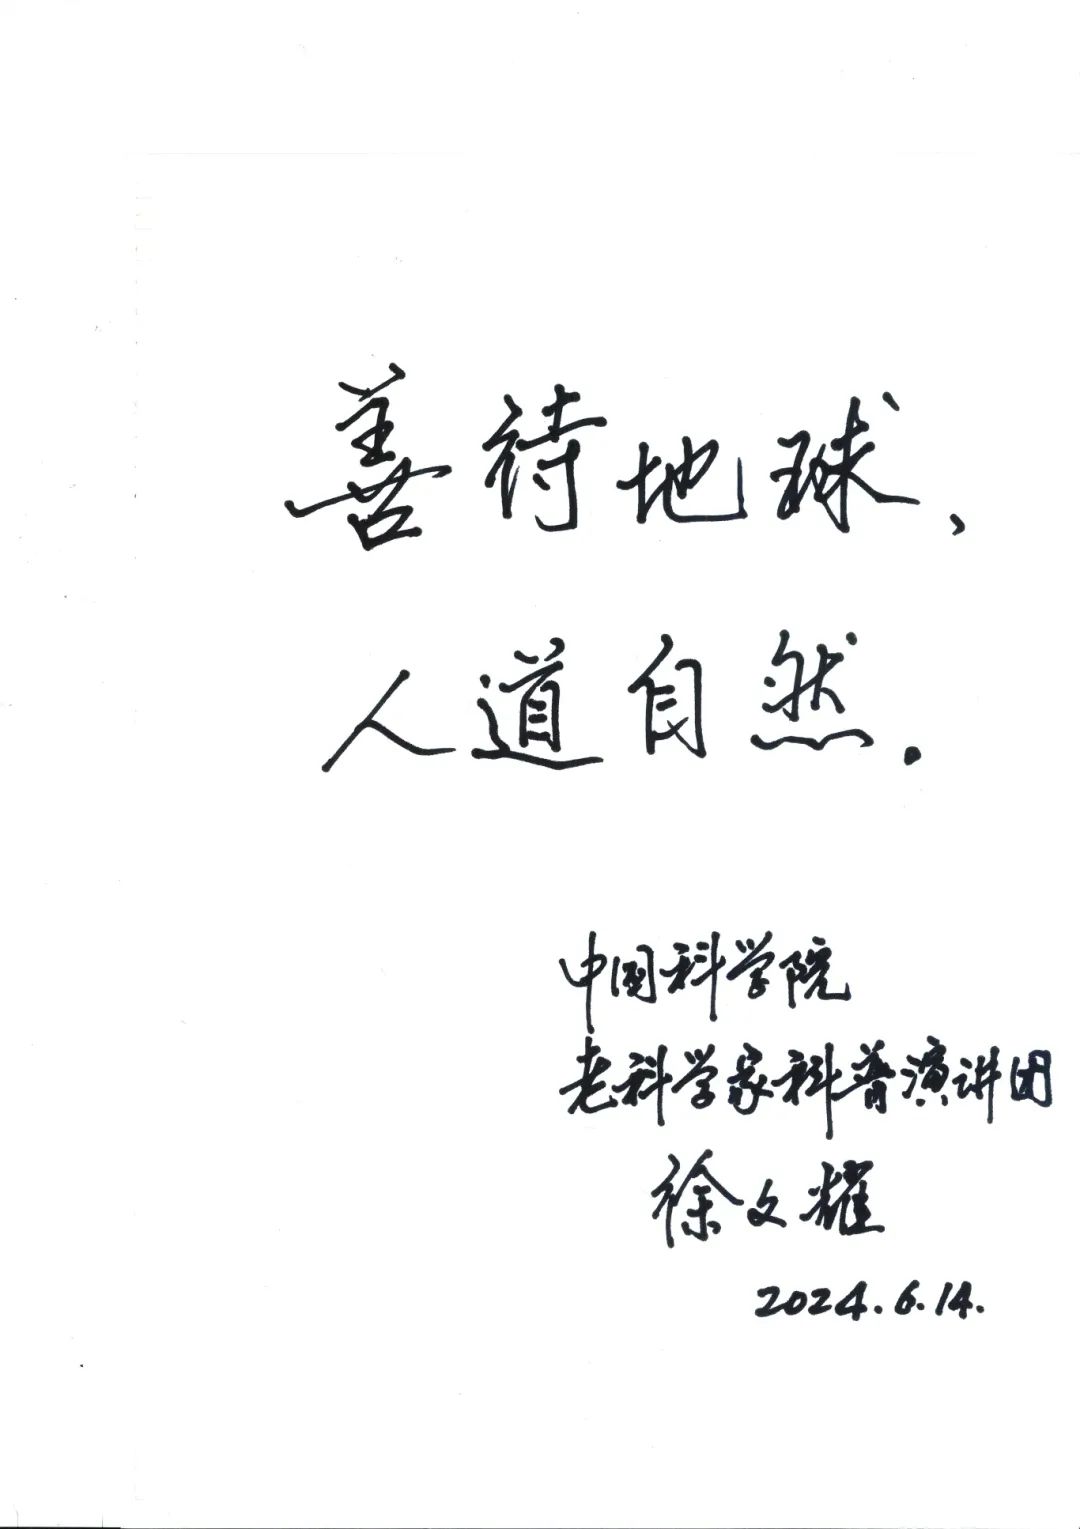 善待地球、
人道自然.
中国科学院
老科学家科普演讲团
徐文耀
2024.6.14.